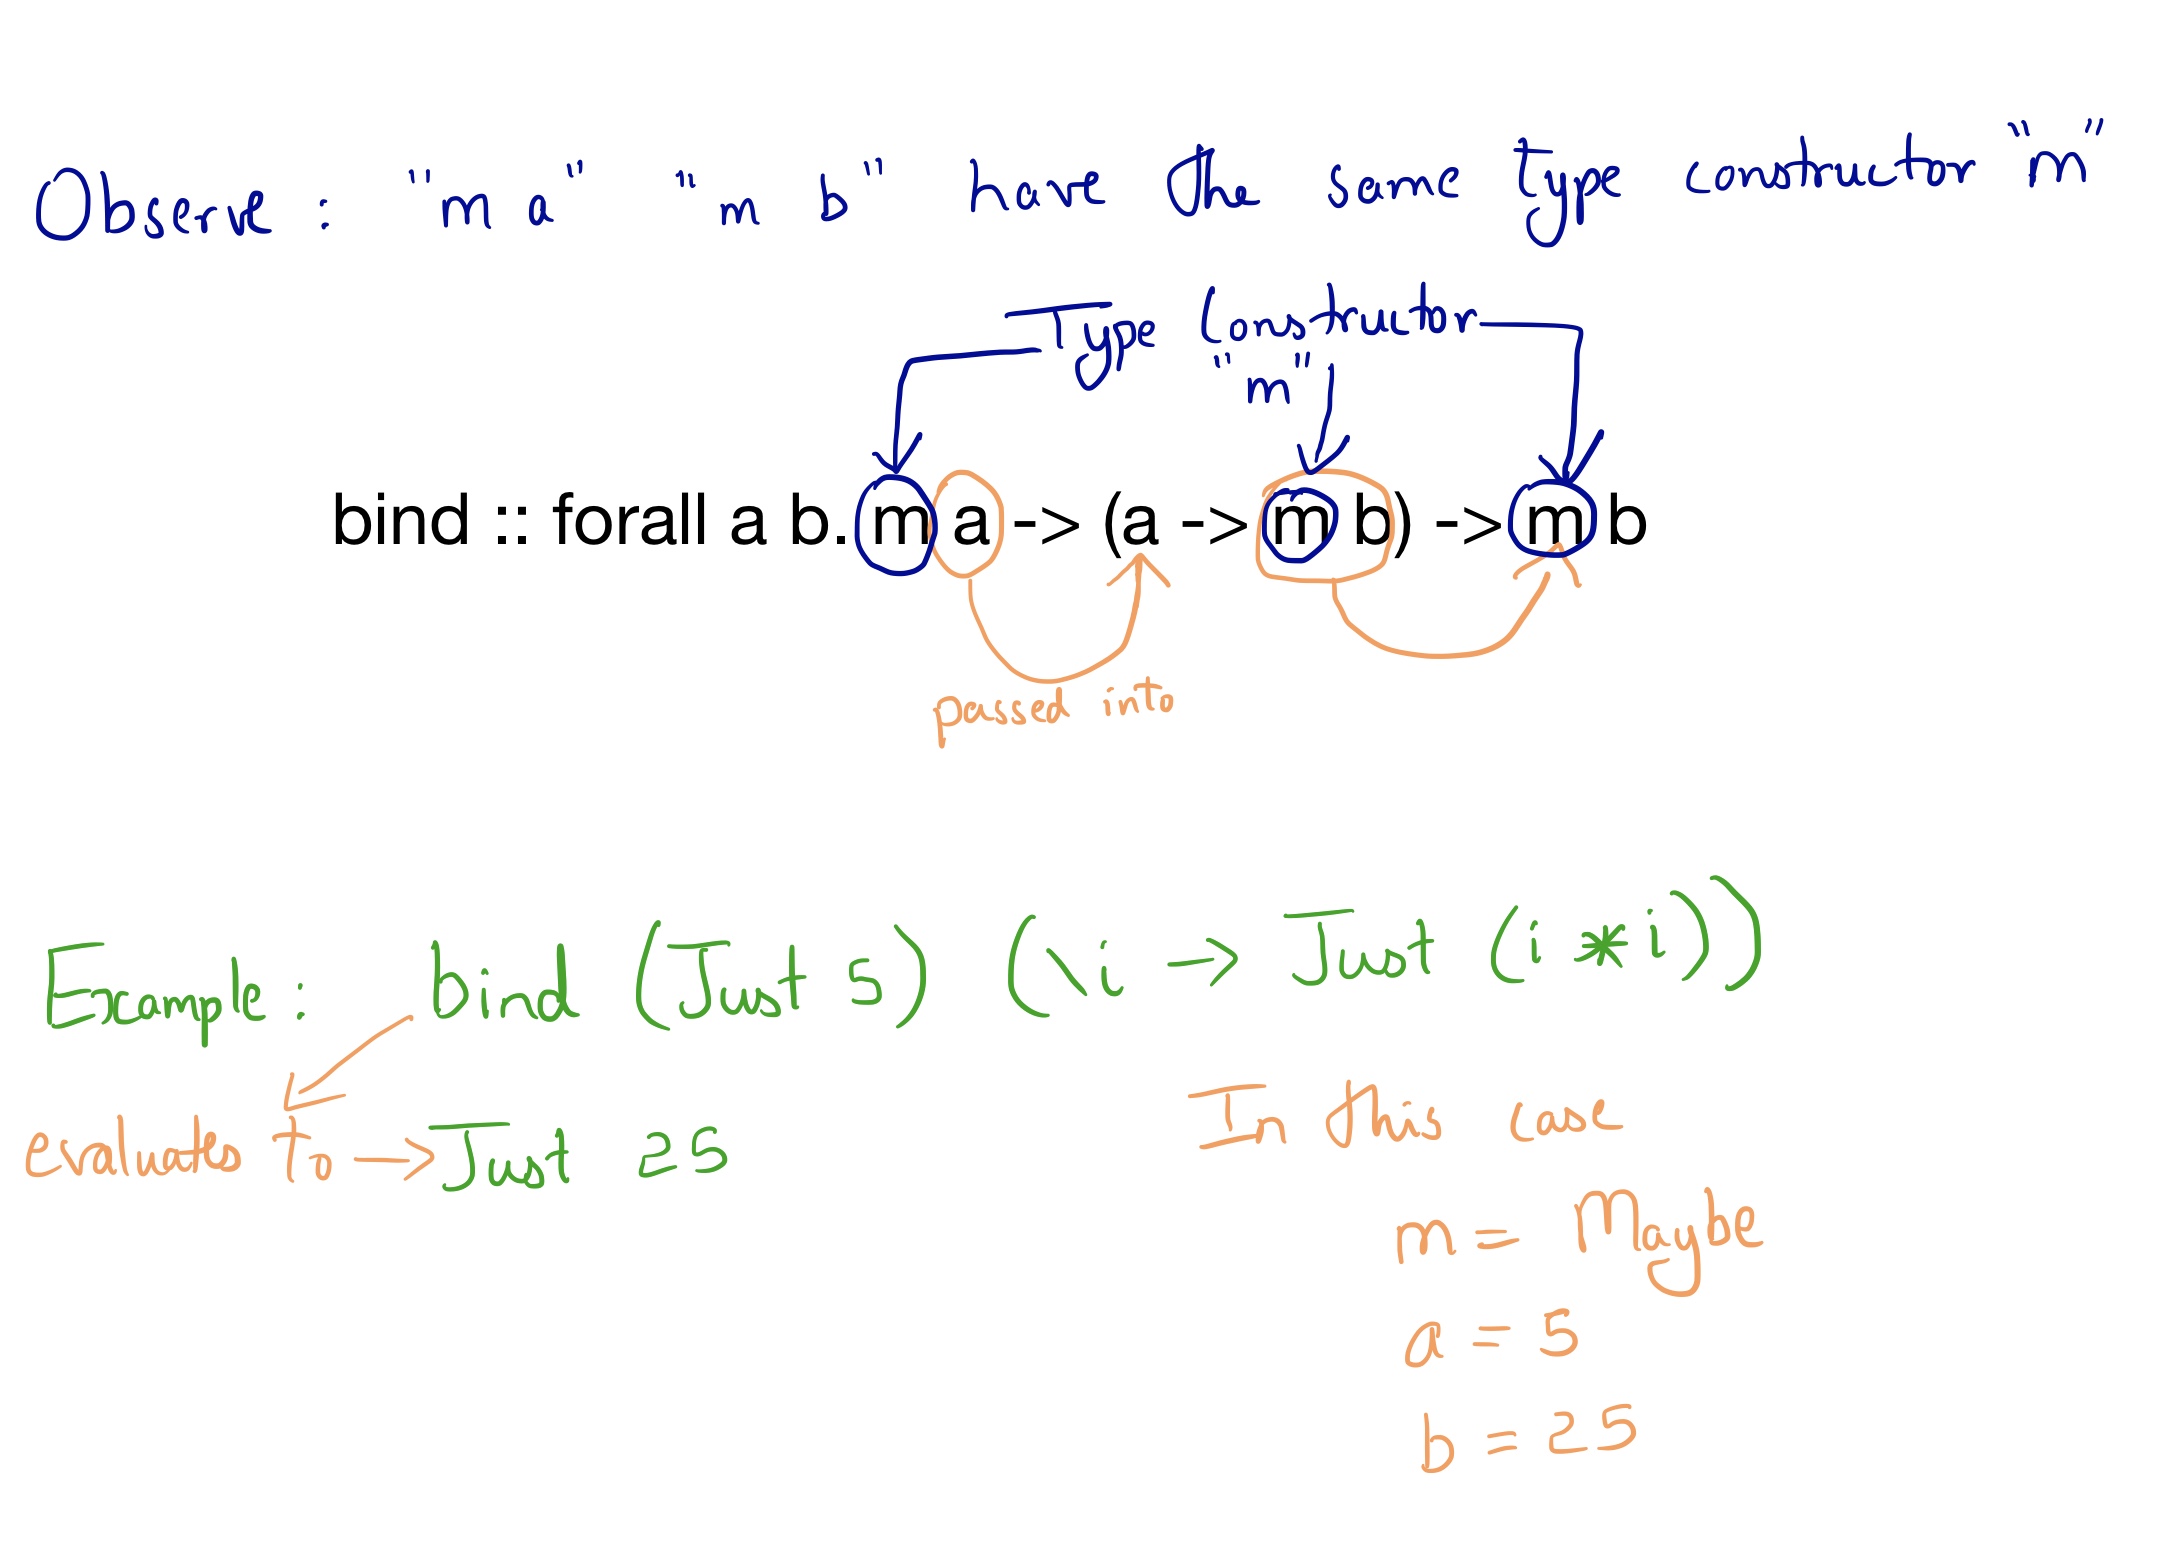 Observe : "m a" "m b" have the same type constructor "m"
Type Constructor
"m"
bind :: forall a b. m a -> (a -> m b) -> m b
passed into
Example : bind (Just 5) (\i -> Just (i * i))
evaluates to -> Just 25
In this case
m = Maybe
a = 5
b = 25